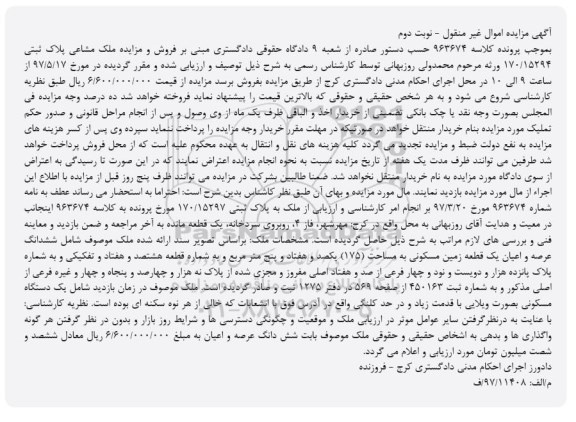 آگهی مزایده اموال غیر منقول - نوبت دوم
بموجب پرونده کلاسه ۹۶۳۶۷۴ حسب دستور صادره از شعبه ۹ دادگاه حقوقی دادگستری مبنی بر فروش و مزایده ملک مشاعی پلاک ثبتی
۱۷۰/۱۵۲۹۴ ورثه مرحوم محمدولی روزبهانی توسط کارشناس رسمی به شرح ذیل توصیف و ارزیابی شده و مقرر گردیده در مورخ ۹۷/۵/۱۷ از
ساعت ۹ الی ۱۰ در محل اجرای احکام مدنی دادگستری کرج از طریق مزایده بفروش برسد مزایده از قیمت ۶/۶۰۰/۰۰۰/۰۰۰ ریال طبق نظریه
کارشناسی شروع می شود و به هر شخص حقیقی و حقوقی که بالاترین قیمت را پیشنهاد نماید فروخته خواهد شد ده درصد وجه مزایده فی
المجلس بصورت وجه نقد یا چک بانکی تضمینی از خریدار اخذ و الباقی ظرف یک ماه از وی وصول و پس از انجام مراحل قانونی و صدور حکم
تملیک مورد مزایده بنام خریدار منتقل خواهد در صورتیکه در مهلت مقرر خریدار وجه مزایده را پرداخت ننماید سپرده وی پس از کسر هزینه های
مزایده به نفع دولت ضبط و مزایده تجدید می گردد کلیه هزینه های نقل و انتقال به عهده محکوم علیه است که از محل فروش پرداخت خواهد
شد طرفین می توانند ظرف مدت یک هفته از تاریخ مزایده نسبت به نحوه انجام مزایده اعتراض نمایند که در این صورت تا رسیدگی به اعتراض
از سوی دادگاه مورد مزایده به نام خریدار منتقل نخواهد شد. ضمنا طالبین بشرکت در مزایده می توانند ظرف پنج روز قبل از مزایده با اطلاع این
اجراء از مال مورد مزایده بازدید نمایند. مال مورد مزایده و بهای آن طبق نظر کاشناس بدین شرح است: احتراما به استحضار می رساند عطف به نامه
شماره ۹۶۳۶۷۴ مورخ ۹۷/۳/۲۰ بر انجام امر کارشناسی و ارزیابی از ملک به پلاک ثبتی ۱۷۰/۱۵۲۹۷ مورخ پرونده به کلاسه ۹۶۳۶۷۴ اینجانب
در معیت و هدایت آقای روزبهانی به محل واقع در کرج، مهرشهر، فاز ۴، روبروی سردخانه، یک قطعه مانده به آخر مراجعه و ضمن بازدید و معاینه
فنی و بررسی های لازم مراتب به شرح ذیل حاصل گردیده است. مشخصات ملک: براساس تصویر سند ارائه شده ملک موصوف شامل ششدانگ
عرصه و اعیان یک قطعه زمین مسکونی به مساحت (۱۷۵) یکصد و هفتاد و پنج متر مربع و به شماره قطعه هشتصد و هفتاد و تفکیکی و به شماره
پلاک پانزده هزار و دویست و نود و چهار فرعی از صد و هفتاد اصلی مفروز و مجزی شده از پلاک نه هزار و چهارصد و پنجاه و چهار و غیره فرعی از
اصلی مذکور و به شماره ثبت ۴۵۰۱۶۳ از صفحه ۵۶۹ در دفتر ۱۲۷۵ ثبت و صادر گردیده است. ملک موصوف در زمان بازدید شامل یک دستگاه
مسکونی بصورت ویلایی با قدمت زیاد و در حد کلنگی واقع در آدرس فوق با انشعابات که خالی از هر نوه سکنه ای بوده است. نظریه کارشناسی:
با عنایت به درنظرگرفتن سایر عوامل موثر در ارزیابی ملک و موقعیت و چگونگی دسترسی ها و شرایط روز بازار و بدون در نظر گرفتن هر گونه
واگذاری ها و بدهی به اشخاص حقیقی و حقوقی ملک موصوف بابت شش دانگ عرصه و اعیان به مبلغ ۶/۶۰۰/۰۰۰/۰۰۰ ریال معادل ششصد و
شصت میلیون تومان مورد ارزیابی و اعلام می گردد.
دادورز اجرای احکام مدنی دادگستری کرج - فروزنده
م/الف: ۹۷/۱۱۴۰۸/ف